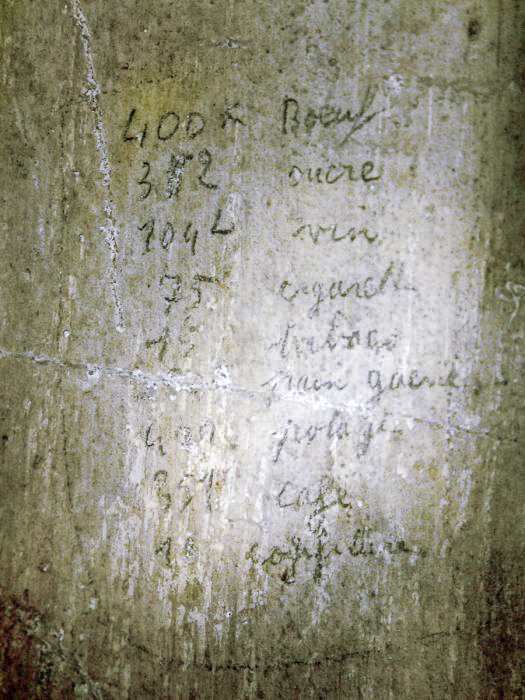 400 K Boeuf
352 sucre
104 L vin
75 cigarett
15 tabac
pain guerre
400 potage
351 café
18 confiture